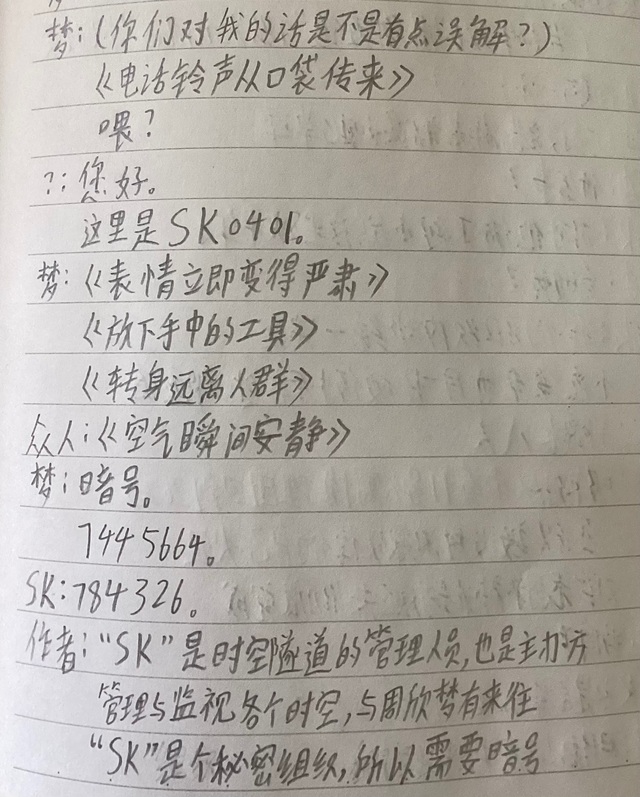 梦:(你们对我的话是不是有点误解?)
《电话铃声从口袋传来》
喂?
?:您好。
这里是SK0401。
梦:《表情立即变得严肃》
《放下手中的工具》
《转身远离人群》
众人:《空气瞬间安静》
梦:暗号。
7445664。
SK:784326。
作者:“SK”是时空隧道的管理人员,也是主办方
管理与监视各个时空,与周欣梦有来往
“SK”是个秘密组织,所以需要暗号